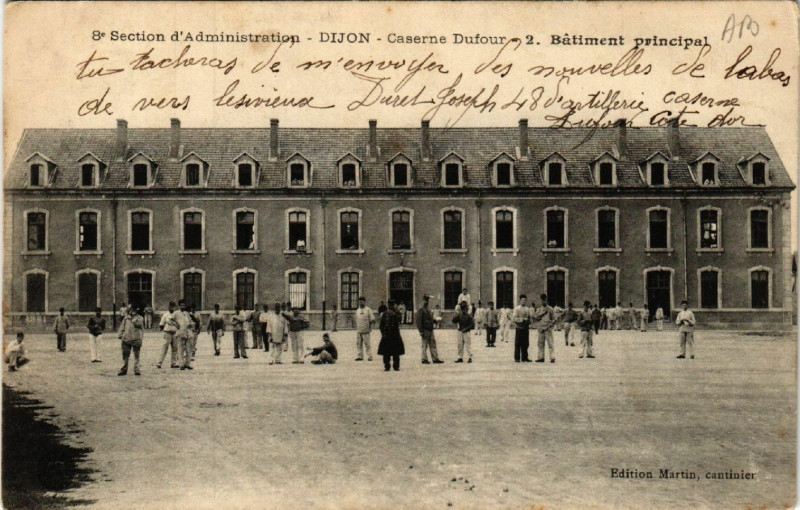 8e Section d'Administration - DIJON - Caserne Dufour - 2. Bâtiment principal
tu tacheras de m'envoyer des nouvelles de labas
de vers lesivieux Duret Joseph 48 d'artillerie caserne
Dufour Cote dor
Edition Martin, cantinier